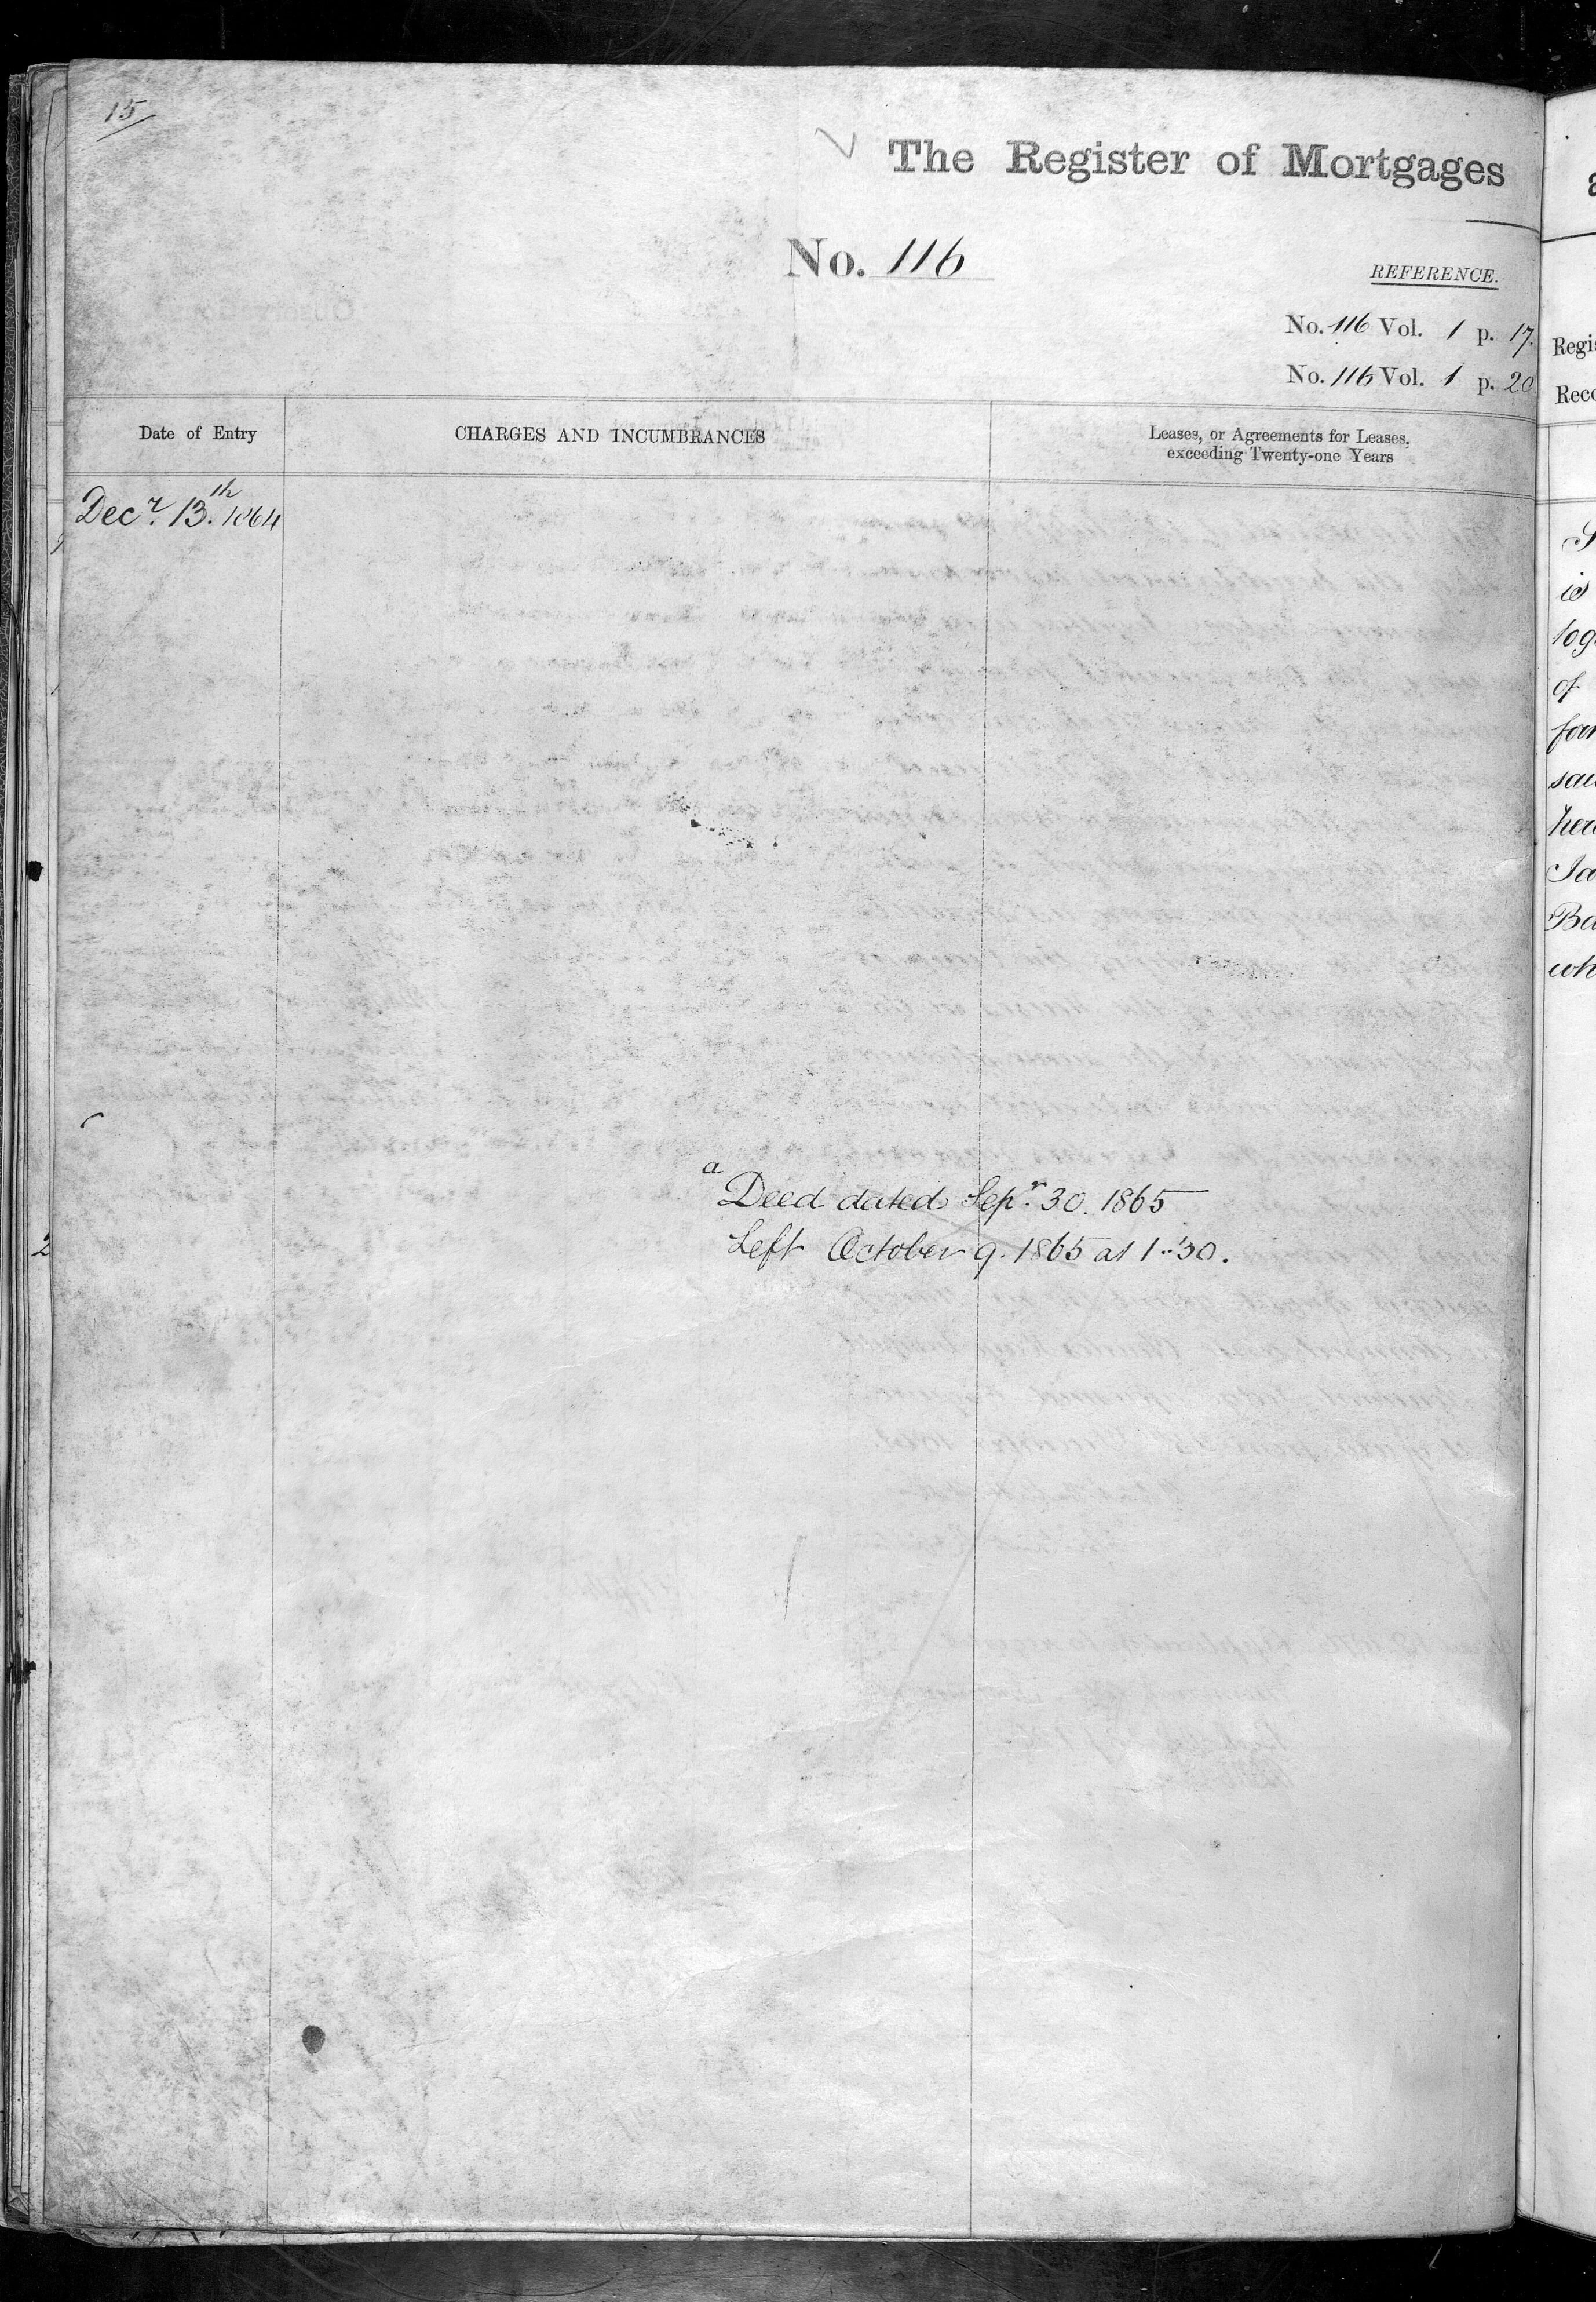 15
The Register of Mortgages
No. 116
REFERENCE.
No. 116 Vol. 1 p. 17.
No. 116 Vol. 1 p. 20
Date of Entry
CHARGES AND INCUMBRANCES
Leases, or Agreements for Leases,
exceeding Twenty-one Years
Decr. 13.th 1864
a
Deed dated Sepr. 30. 1865
Left October 9. 1865 at 1..30.
2
Regis
Reco
is
toge
of
for
said
here
Ja
Ba
wh